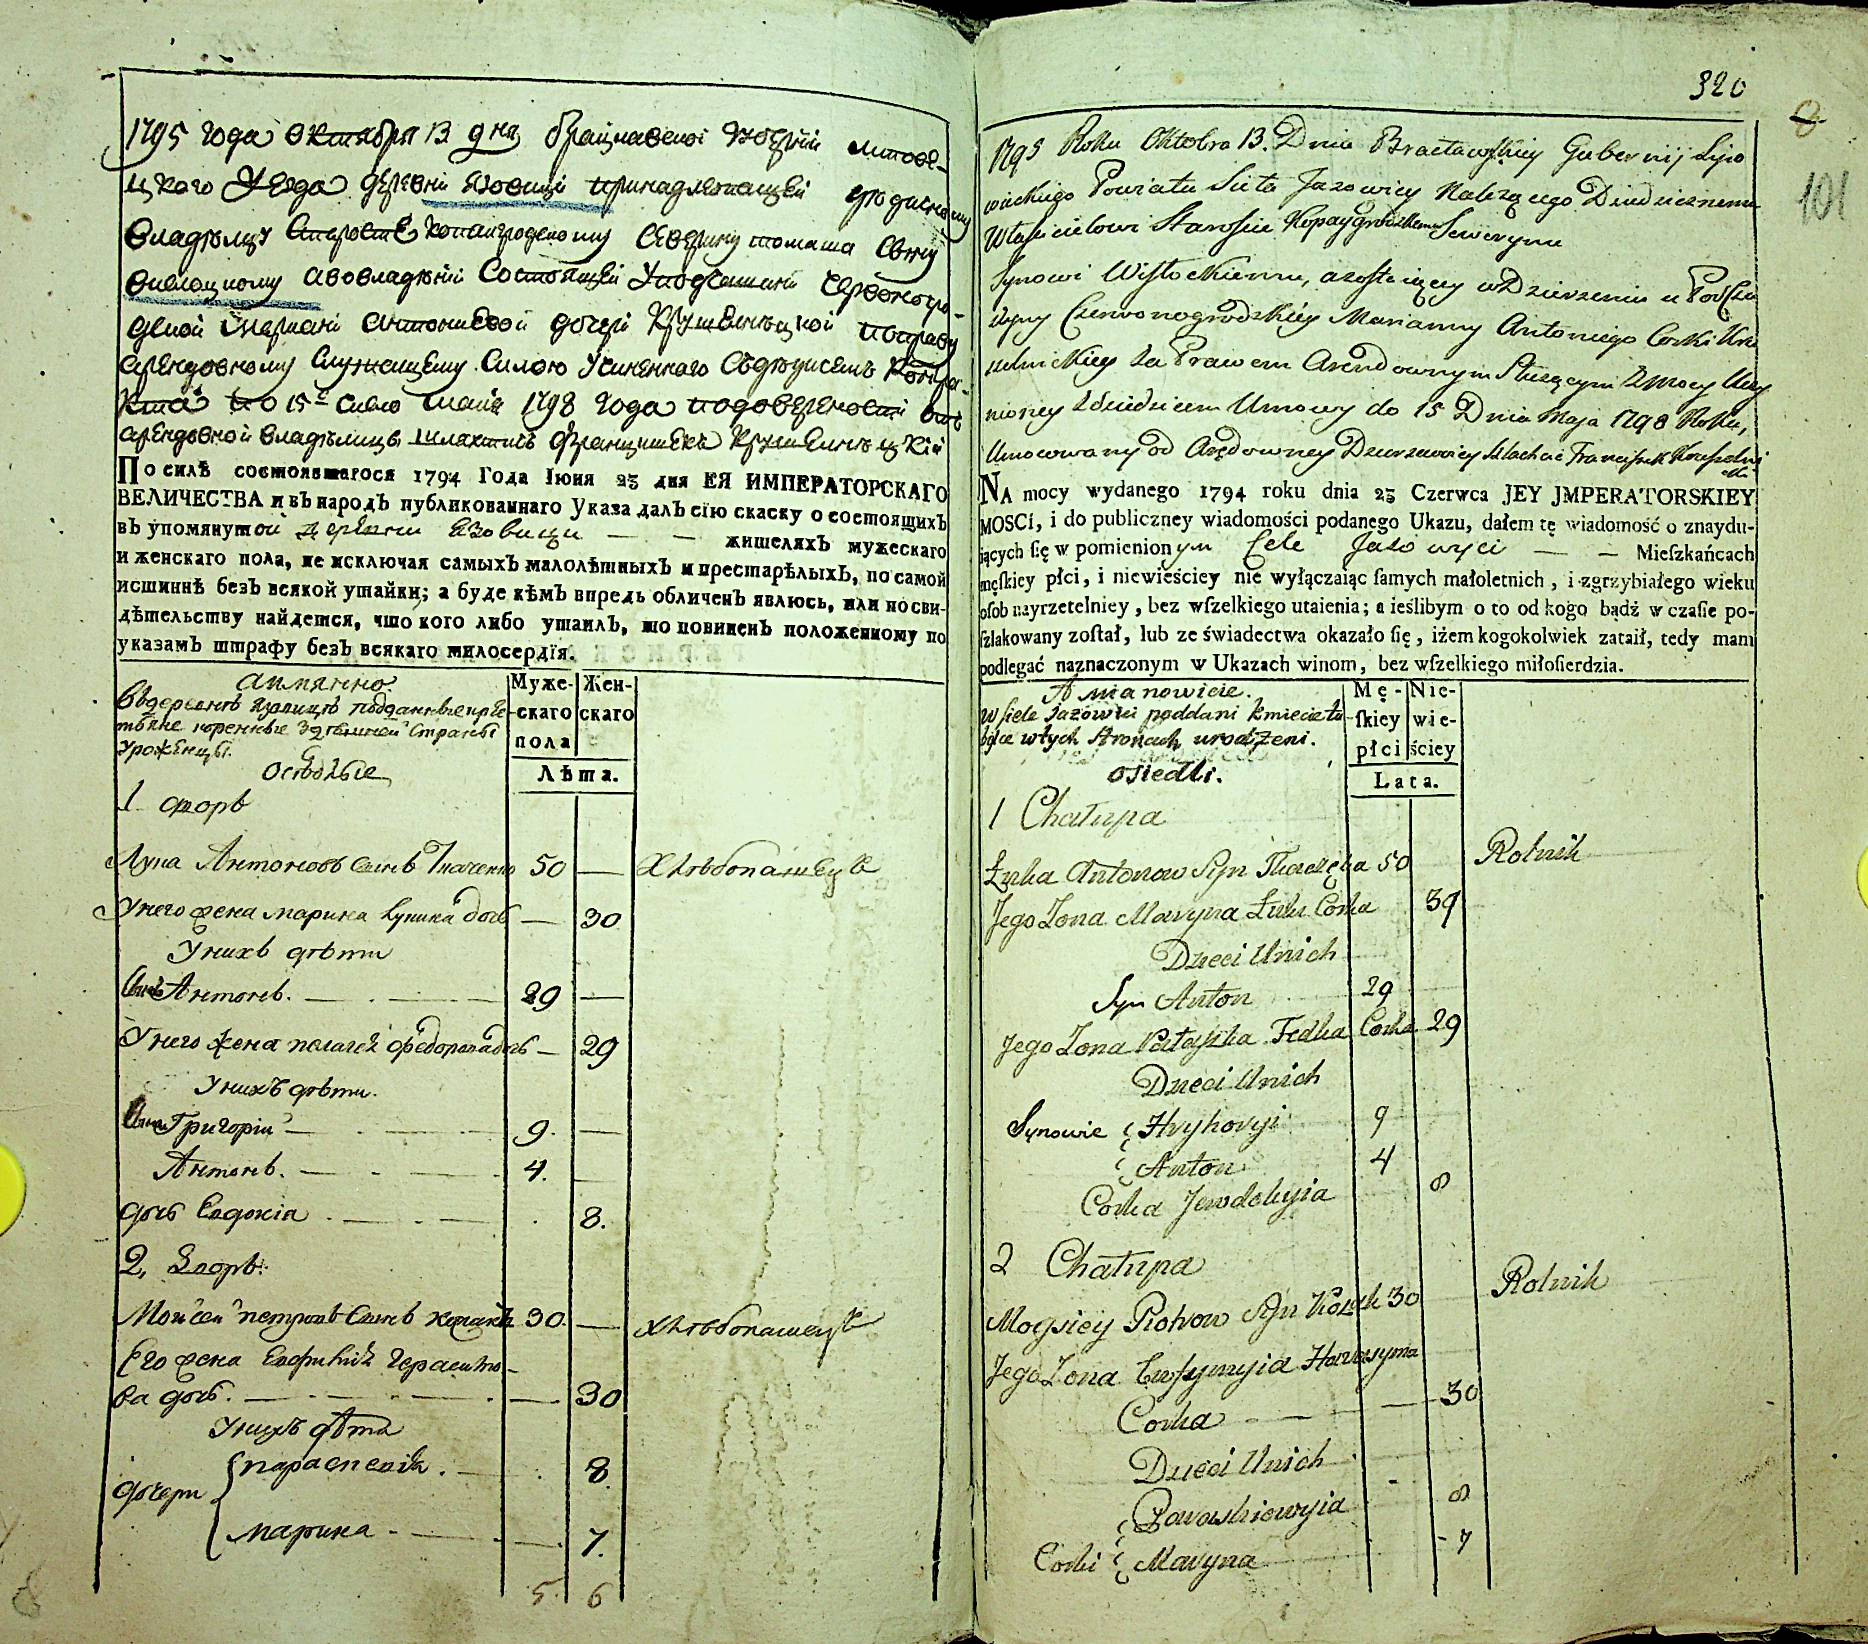 1795 года октября 13 дня брацлавской губерніи липове-
цкаго уезда деревни Язовици принадлежащей
владѣлцу Старостѣ копаигродскому Северину томаша сыну
висло­цкому авовладѣніи состоящей
дской Мариани антониевой дочери Крушелницкой поправу
арендовному служащему силою учиненнаго
до 15 сего маия 1798 года подоверености
арендовной владѣлици шляхтичъ францишекъ Крушелницкій
По силѣ состоявшагося 1794 Года Іюня 23 дня ЕЯ ИМПЕРАТОРСКАГО
ВЕЛИЧЕСТВА и въ народъ публикованнаго Указа далъ сію скаску о состоящихъ
въ упомянутой деревни Язовици — — жителяхъ мужескаго
и женскаго пола, не исключая самыхъ малолѣтныхъ и престарѣлыхъ, по самой
истиннѣ безъ всякой утайки; а буде кѣмъ впредь обличенъ явлюсь, или по сви-
дѣтельству найдется, что кого либо утаилъ, то повиненъ положенному по
указамъ штрафу безъ всякаго милосердїя.
аимянно
Муже-скаго пола
Жен-скаго
Лѣта.
Въдеревнѣ Язовицѣ подданные кре
стьяне коренные здешней страны
уроженцы.
Оседлые
1 дворъ
Лука Антоновъ сынъ Ткаченко 50 — хлѣбопашецъ
У него жена марина лукина дочь — 30
У нихъ дѣти
Сынъ Антонъ. — 29 —
У него жена палагея федорова дочь — 29
У нихъ дѣти.
Сыны Григорій — 9. —
Антонъ. — 4. —
дочь Евдокія — 8.
2, дворъ.
Моисей петровъ сынъ козакъ 30. — хлѣбопашецъ
Его жена Евфимія Герасимо-
ва дочь. — 30
У нихъ дѣти
дочери
параскевія. — 8
марина — 7.
5. 6
320
8
101
1795 Roku Oktobra 13. Dnia Bracławskiey Gubernij Lipo
wieckiego Powiatu Sieła Jazowicy Należącego Dziedzicznemu
Właścicielowi Staroście Kopaygrodzkiemu Sewerynu
Synowi Wisłockiemu, azostaiący w Dzierzeniu u Podcza
szyny Czerwonogrodzkiey Marianny Antoniego Corki Kru
szelnickiey Za Prawem Arendownym Służącym Zmocy Uczy
nioney Zdziedzicem Umowy do 15 Dnia Maja 1798 Roku,
Umocowany od Arędowney Dzierzawicy Szlachcic Franciszek Kruszelni
cki
NA mocy wydanego 1794 roku dnia 23 Czerwca JEY JMPERATORSKIEY
MOSCI, i do publiczney wiadomości podanego Ukazu, dałem tę wiadomość o znaydu-
iących ſię w pomienionym Sele Jazowyci — — Mieſzkańcach
męſkiey płci, i niewieściey nie wyłączaiąc ſamych małoletnich, i zgrzybiałego wieku
oſob nayrzetelniey, bez wſzelkiego utaienia; a ieślibym o to od kogo bądź w czaſie po-
ſzlakowany zoſtał, lub ze świadectwa okazało ſię, iżem kogokolwiek zataił, tedy mam
podlegać naznaczonym w Ukazach winom, bez wſzelkiego miłoſierdzia.
A mianowicie.
Mę-ſkiey płci
Nie-wie-ściey
Lata.
w siele Jazowici poddani kmiecie tu
byłce wtych stronach urodzeni.
osiedli.
1 Chałupa
Łuka Antonow Syn Tkaczęka 50 Rolnik
Jego Zona Maryna Łuki Corka 39
Dzieci Unich
Syn Anton 29
Jego Zona Pałaszka Fedka Corka 29
Dzieci Unich
Synowie Hryhoryi 9
Anton 4
Corka Jewdokyia 8
2 Chałupa
Moysiey Piotrow Syn Kozak 30 Rolnik
Jego Zona Ewfymyia Harasyma
Corka — 30
Dzieci Unich
Parawskiewyia 8
Corki Maryna - 7